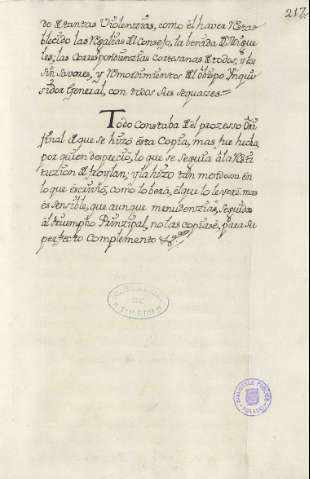 217.
de tantas Violenzias, como el haver Resta-
blecido las Regalias del Consejo, la benida de Migue-
les, las Correspondienzias Cortesanas de todos, y los
sin savores, y Remordimientos del obispo Ynqui-
sidor General, con todos sus sequazes.=
Todo Constaba del prozesso Ori-
jinal de que se hizo esta Copia, mas fue hecha
por quien desprecio, lo que se seguia a la Resti-
tuzion de froylan; y la hizo tan monstruosa en
lo que escrivió, como lo berá, el que lo leyere, mas
es sensible, que aunque menudenzias, seguidas
al triumpho Prinzipal, no las copiase, para su
perfecto Complemento &c.
DE
TOLEDO
BIBLIOTECA PUBLICA
TOLEDO